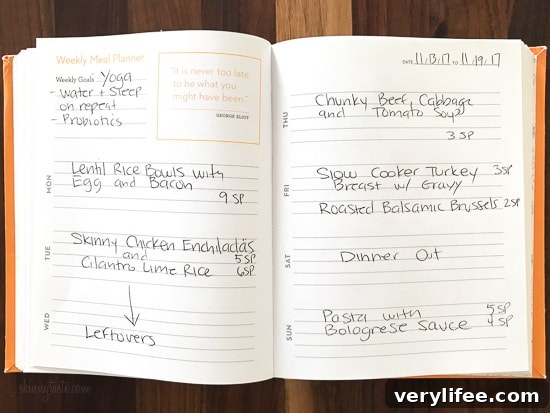 Weekly Meal Planner
Weekly Goals Yoga
- Water + Sleep
on repeat
- Probiotics
"It is never too late
to be what you
might have been."
GEORGE ELIOT
MON
Lentil Rice Bowls with
Egg and Bacon
9 SP
TUE
Skinny Chicken Enchiladas
5 SP
and
Cilantro Lime Rice 6SP
WED
Leftovers
skinnytaste.com
DATE 11/13/17 TO 11/19/17
THU
Chunky Beef, Cabbage
and Tomato Soup
3 SP
FRI
Slow Cooker Turkey 3SP
Breast w/ Gravy
Roasted Balsamic Brussels 2SP
SAT
Dinner Out
SUN
Pasta with 5 SP
Bolognese Sauce 4 SP
verylifee.com